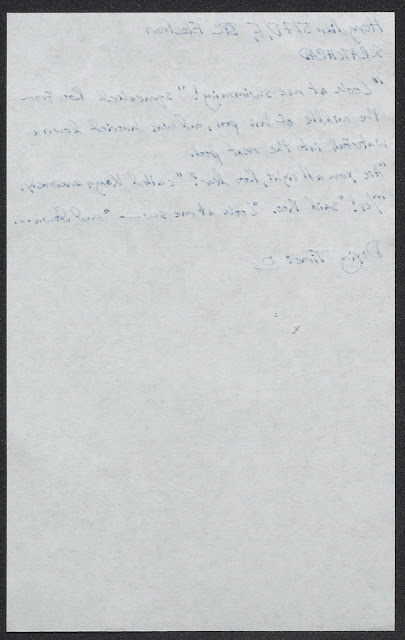 "Look at me swimming!" squeaked Roo from
the middle of his pool, and was hurried down a
waterfall into the next pool.
"Are you all right, Roo dear?" called Kanga anxiously.
"Yes!" said Roo. "Look at me sw—" and down…
Drying Time: 0